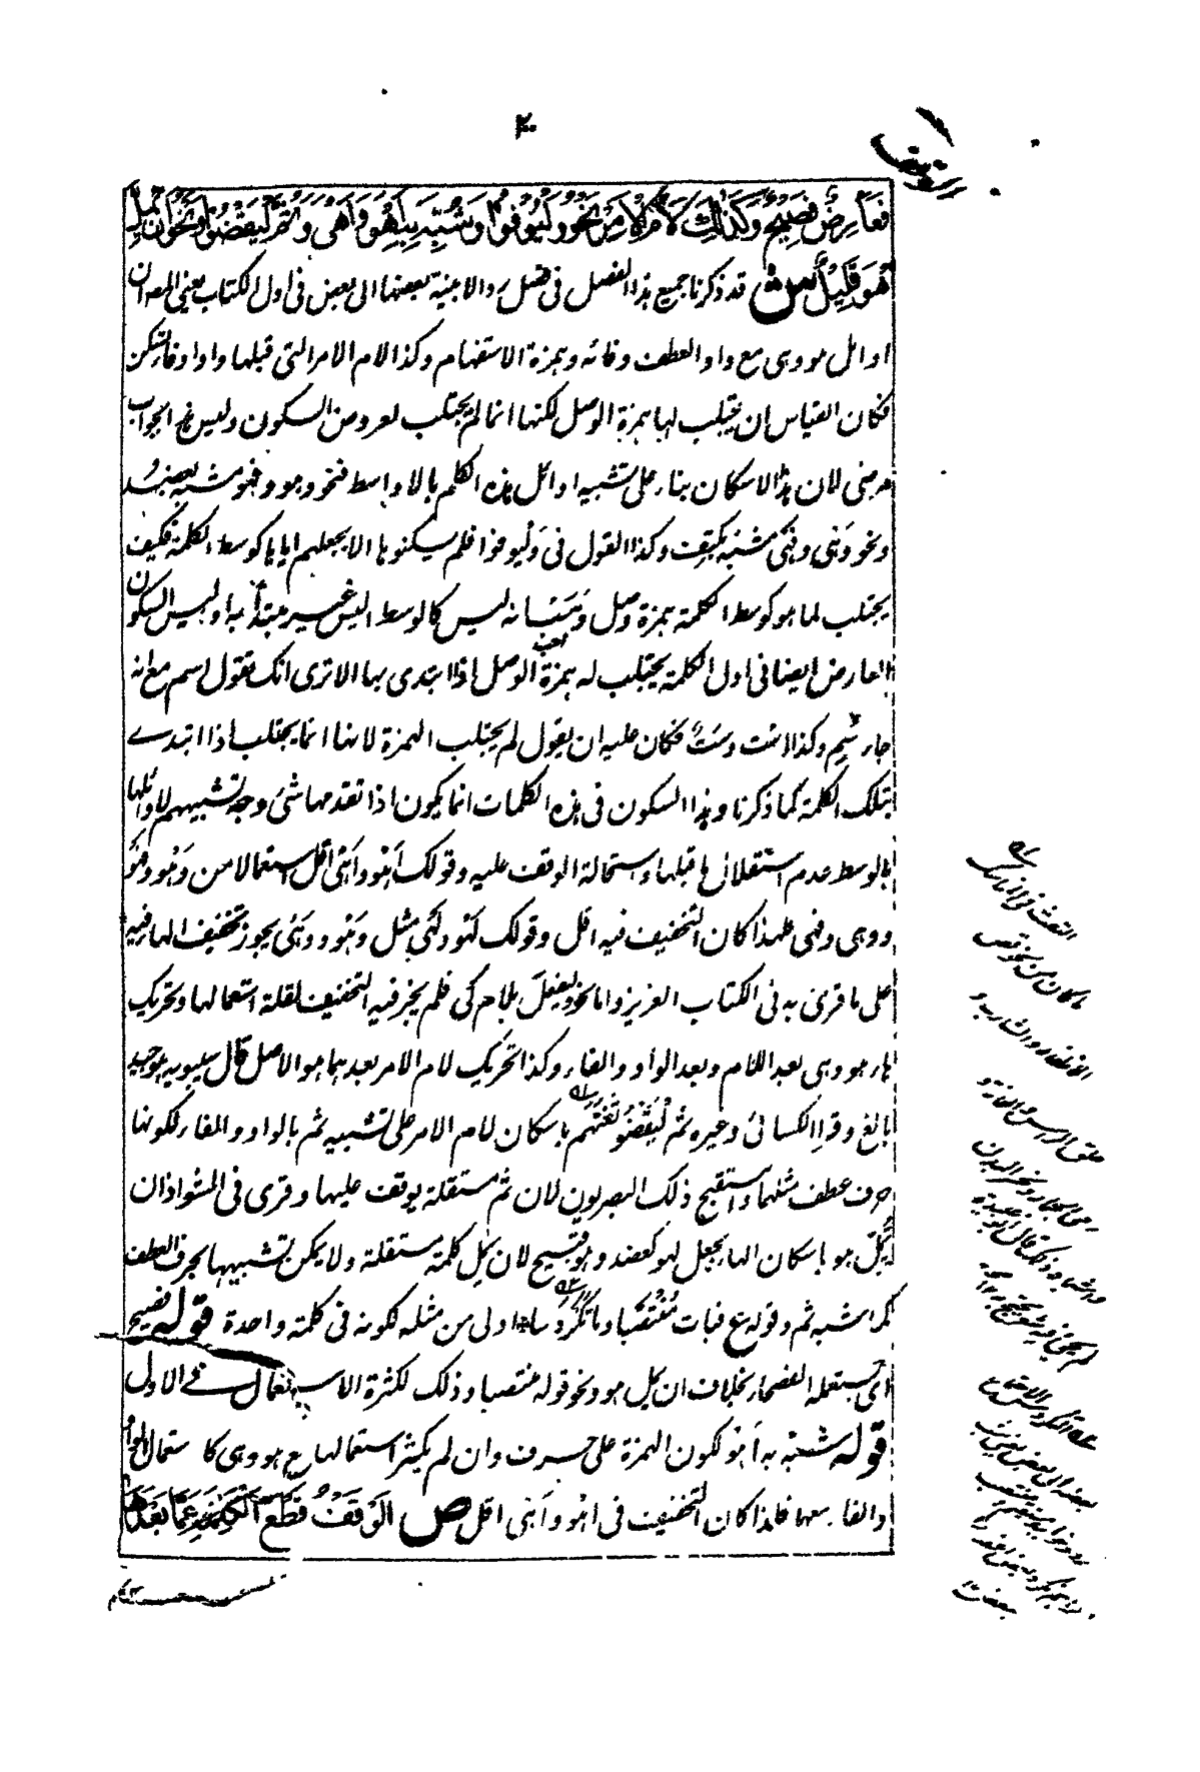 فَعَارِضٌ فَصِيحٌ وَكَذٰلِكَ لَامُ الْاَمْرِ نَحْوُ وَلْيُوفُوا وَشُبِّهَ بِهِ اَهُوَ وَاَهِيَ وَثُمَّ لْيَقْضُوا وَنَحْوُ اَنْ يُمِلَّ
هُوَ قَلِيلٌ ش قد ذكرنا جميع هذا الفصل فى فصل رد الابنية بعضها الى بعض فى اول الكتاب يعنى المص ان
اوائل هو وهى مع واو العطف وفائه وهمزة الاستفهام وكذا لام الامر التى قبلها واو او فاء لم تسكن
فكان القياس ان يجتلب لها همزة الوصل لكنها انما لم يجتلب لعروض السكون وليس هذا الجواب
بمرضى لان هذا الاسكان بناء على تشبيه اوائل هذه الكلم بالاواسط فنحو وهو وفهو مشبه بعضد
ونحو وهى وفهى مشبه بكتف وكذا القول فى وليوفوا فلم يسكنوها الا لجعلهم اياها كوسط الكلمة فكيف
يجتلب لما هو كوسط الكلمة همزة وصل وهب انه ليس كالوسط اليس غير مبتدأ به اوليس السكون
العارض ايضا فى اول الكلمة يجتلب له همزة الوصل اذا ابتدى بها الا ترى انك تقول اسم مع انه
جاء سُم وكذا است وسَت فكان عليه ان يقول لم يجتلب الهمزة لانها انما يجتلب اذا ابتدے
بتلك الكلمة كما ذكرنا وهذا السكون فى هذه الكلمات انما يكون اذا تقدمها شئ وجه تشبيههم لاوائلها
بالوسط عدم استقلال ما قبلها واستحالة الوقف عليه وقولك اَهْو واَهْى اقل استعمالا من وَهْو وفَهْو
ووهى وفهى فلهذا كان التخفيف فيه اقل وقولك لَهْو ولَهْى مثل وَهْو ووَهْى يجوز تخفيف الهاء فيه
على ما قرئ به فى الكتاب العزيز واما نحو ليفعل بلام كى فلم يجز فيه التخفيف لقلة استعمالها وتحريك
هاء هو وهى بعد اللام وبعد الواو والفاء وكذا تحريك لام الامر بعدهما هو الاصل قال سيبويه هو جيد
بالغ وقرأ الكسائى وغيره ثُمَّ لْيَقْضُوا تَفَثَهُم باسكان لام الامر على تشبيه ثم بالواو والفاء لكونها
حرف عطف مثلهما واستقبح ذلك البصريون لان ثم مستقلة يوقف عليها وقرئ فى الشواذ ان
يُمِلَّ هو باسكان الهاء بجعل لهو كعضد وهو قبيح لان يمل كلمة مستقلة ولا يمكن تشبيهها بحرف العطف
كما شبه ثم وقوله ع فبات مُنْتَصْبًا وما تَكَرْدَسا اولى من مثله لكونه فى كلمة واحدة قوله فصيح
اى يستعمله الفصحاء بخلاف ان يمل هو ونحو قوله منتصبا وذلك لكثرة الاستعمال فے الاول
قوله شبه به اَهْو لكون الهمزة على حرف وان لم يكثر استعمالها مع هو وهى كاستعمال الواو
والفاء معها فلهذا كان التخفيف فى اهْو واَهْى اقل ص اَلْوَقْفُ قَطْعُ الْكَلِمَةِ عَمَّا بَعْدَهَا